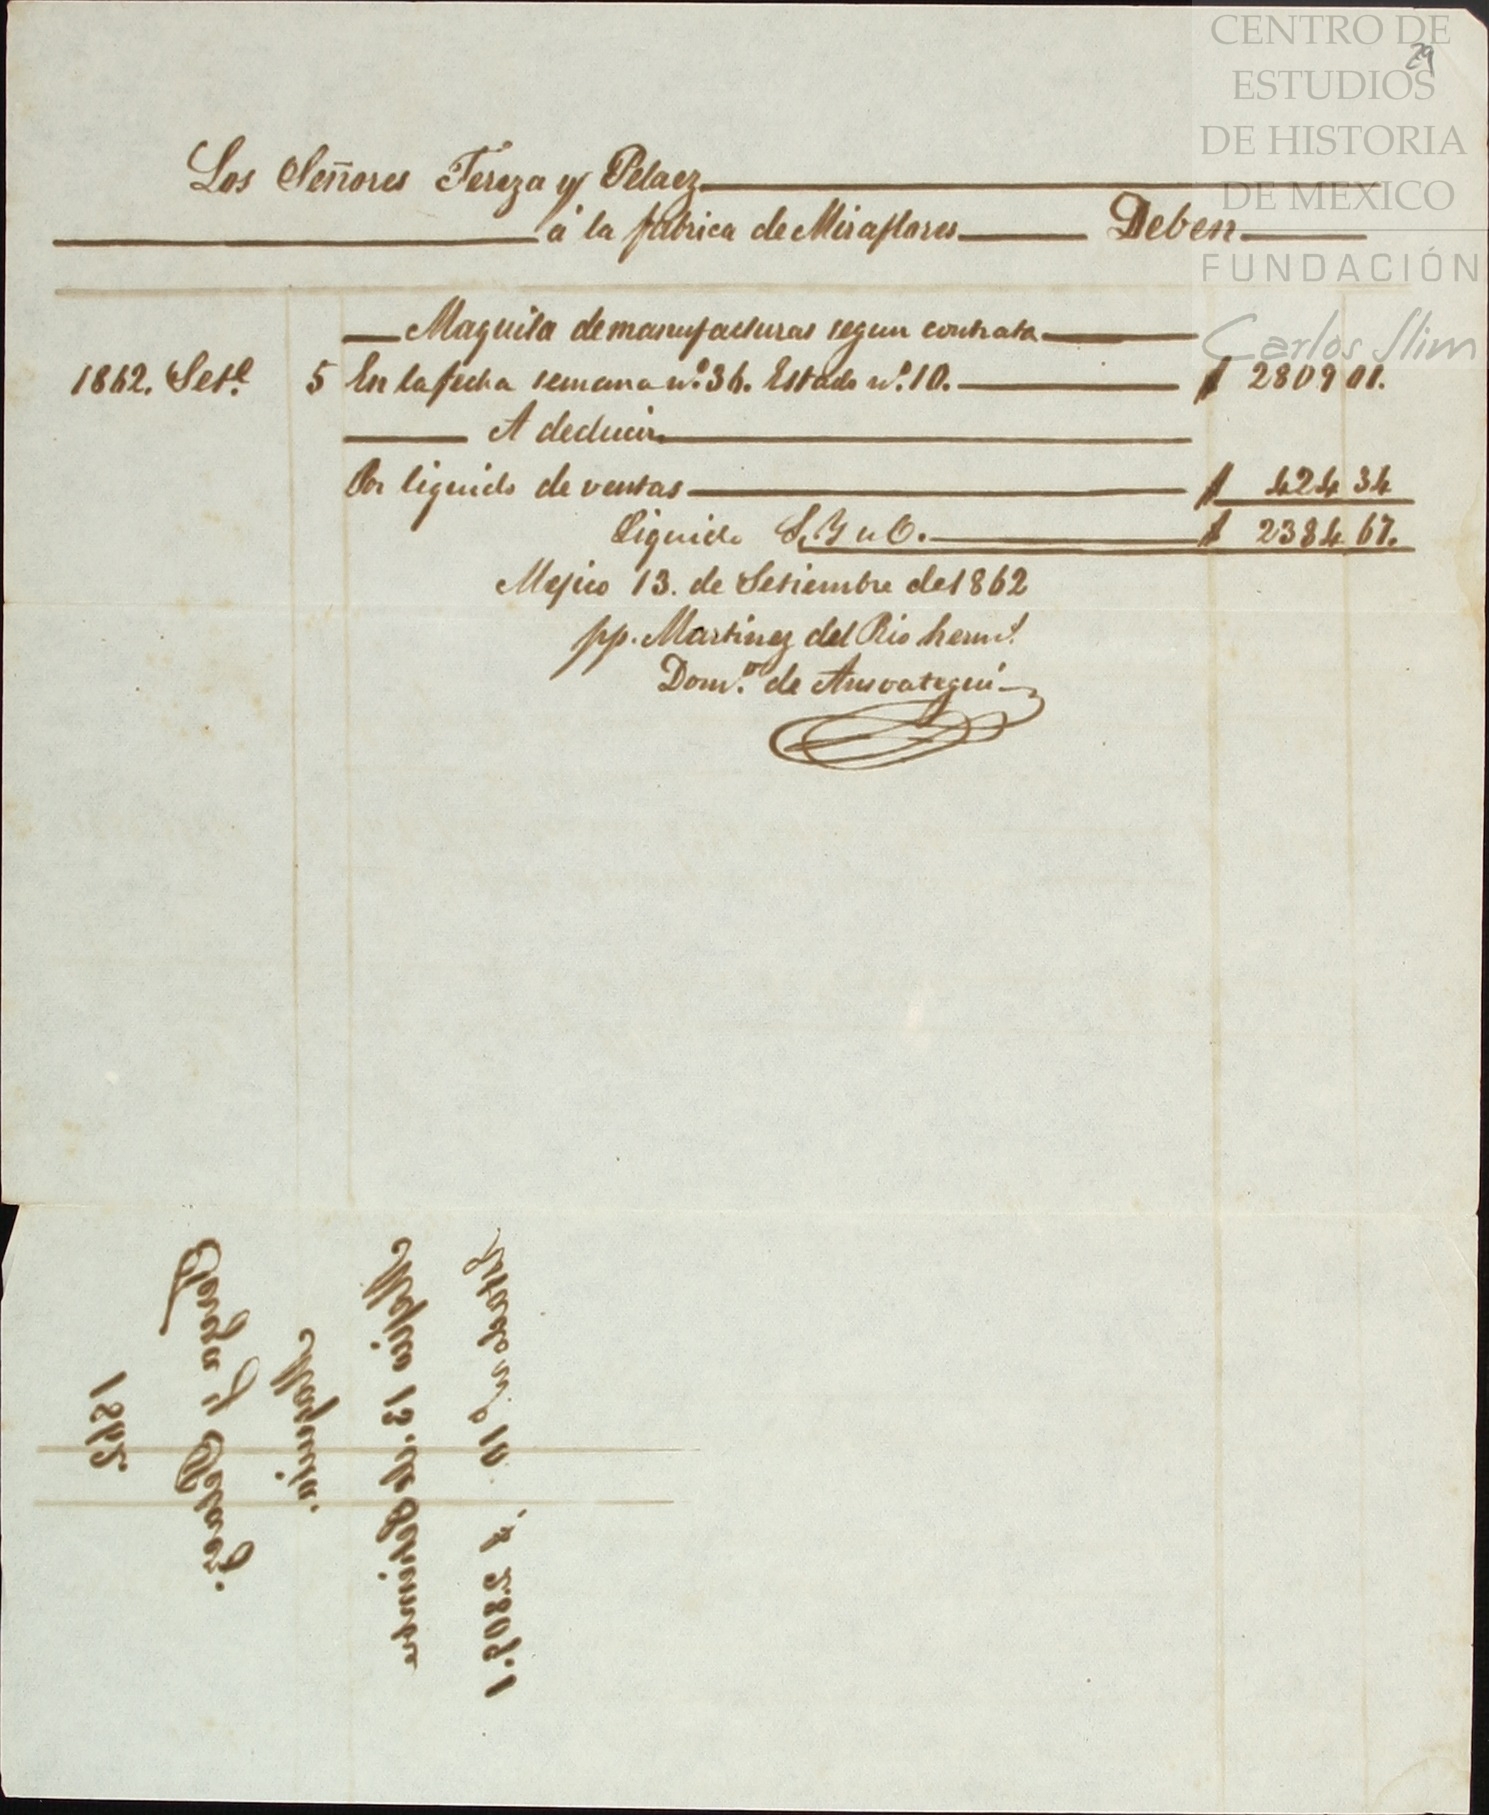 29
CENTRO DE
ESTUDIOS
DE HISTORIA
DE MEXICO
FUNDACIÓN
Carlos Slim
Los Señores Tereza y Pelaez
á la fabrica de Miraflores Deben
Maquila de manufacturas segun contrata
1862. Set.e 5 En la fecha semana n.o 36. Estado n.o 10. $ 2809 01.
A deducir
Por liquido de ventas $ 424 34
Liquido S. Y u O. $ 2384 67.
Mejico 13. de Setiembre de 1862
pp. Martinez del Rio herm.s
Dom.o de Ansoategui
1862
Tereza y Pelaez.
Maquila.
Mejico 13. de Setiembre
Estado n.o 10 $ 2809.1